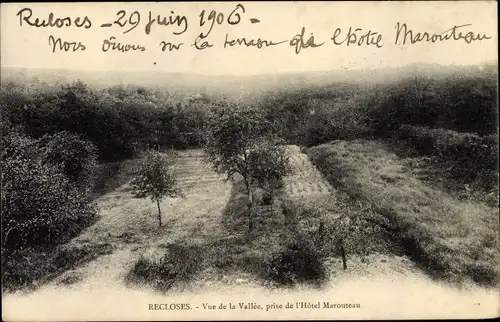 Recloses - 29 juin 1906 -
Nous dînons sur la terrasse de l'hôtel Marouteau
RECLOSES. - Vue de la Vallée, prise de l'Hôtel Marouteau